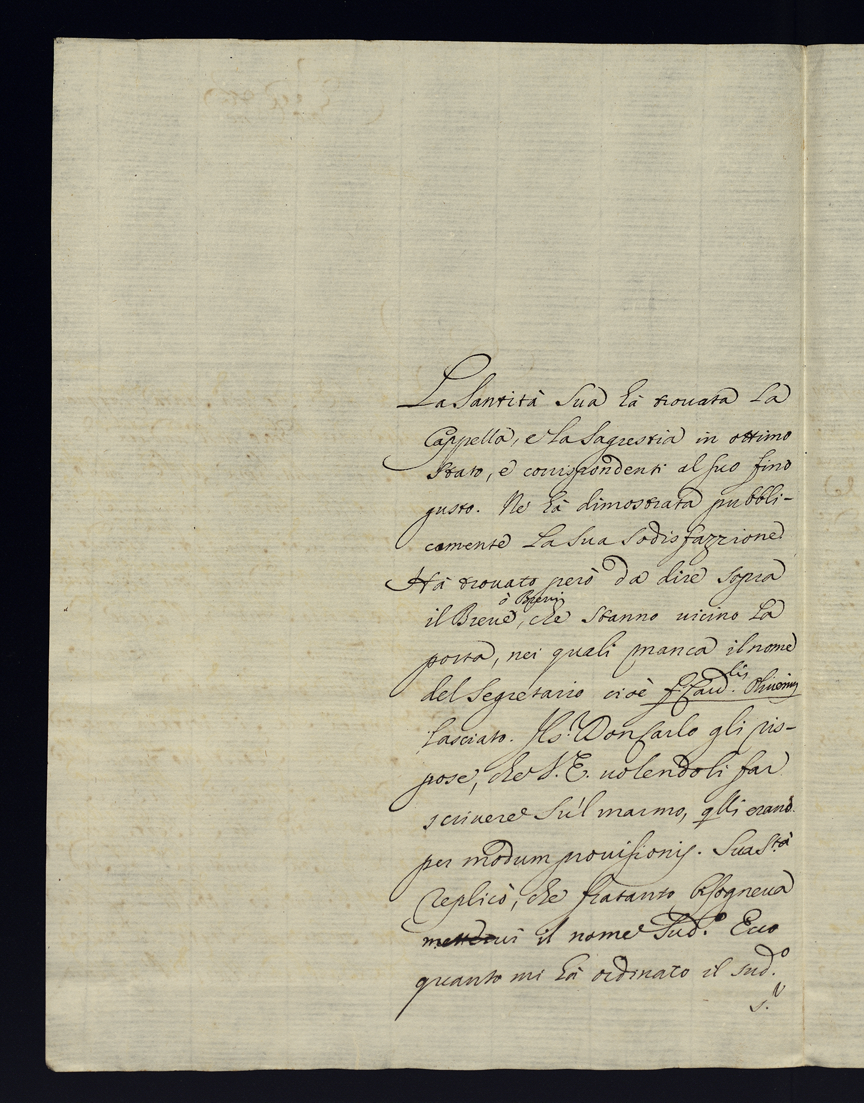 La Santità Sua hà trovata la
Cappella, e la Sagrestia in ottimo
stato, e corrispondenti al suo fino
gusto. Nè hà dimostrata pubbli-
camente la sua sodisfazzione
Hà trovato però da dire sopra
ò Brevi
il Breve, che stanno vicino la
porta, nei quali manca il nome
del Segretario cioè f. Card.lis Oliverius
lasciato. Don Carlo gli ris-
pose, che V. E. volendoli far
scrivere sù'l marmo, q̃lli erano
per modum provisionis. Sua S.tà
replicò, che fratanto bisogneva
mettervi il nome Sud.o Ecco
quanto mi hà ordinato il sud.o